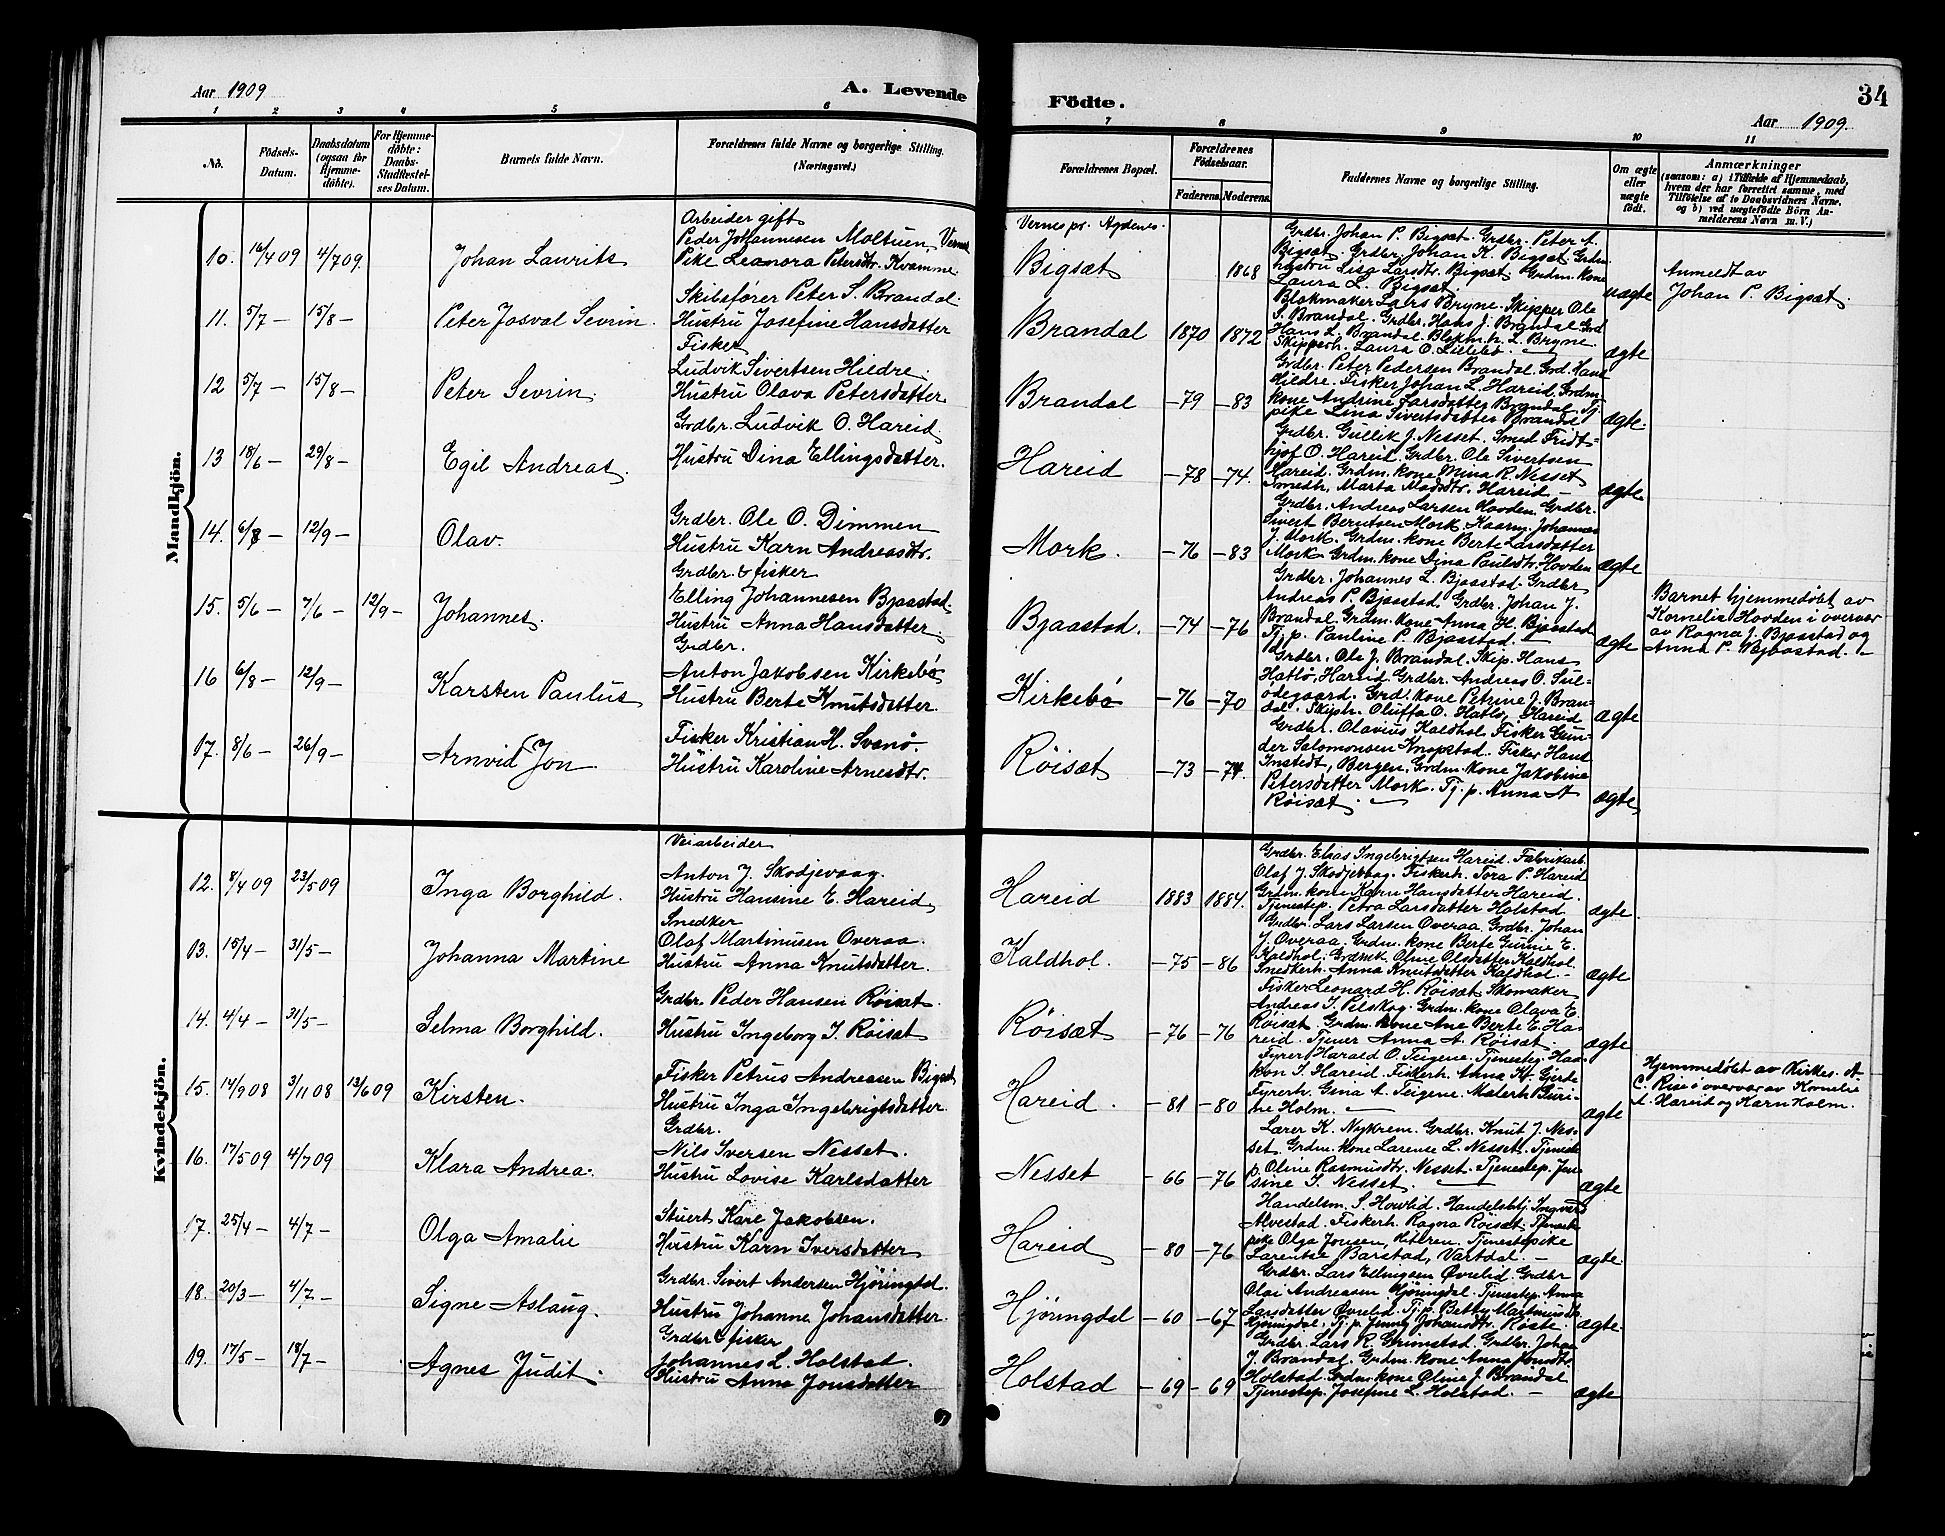 Aar 1909
A. Levende
Födte.
34
Aar 1909.
1 2 3 4 5 6 7 8 9 10 11
No.
Födsels-Datum.
Daabsdatum (ogsaa for Hjemmedöbte).
For Hjemmedöbte: Daabs-Stadfæstelses Datum.
Barnets fulde Navn.
Forældrenes fulde Navne og borgerlige Stilling. (Næringsvei.)
Forældrenes Bopæl.
Forældrenes Födselsaar.
Faderens. Moderens.
Faddernes Navne og borgerlige Stilling.
Om ægte eller uægte födt.
Anmærkninger
(saasom: a) i Tilfælde af Hjemmedaab, hvem der har forrettet samme, med Tilföielse af to Daabsvidners Navne. og b) ved uægtefödte Börn Anmelderens Navn m. V.)
Mandkjön.
10. 16/4 09 4/7 09. Johan Laurits
Arbeider gift
Peder Johannesen Moltuen, Vernes
Pike Leanora Petersdtr. Kvamme
Vernes pr. Agdenes.
Bigsæt 1868
Grdbr. Johan P. Bigsæt. Grdbr. Peter A.
Bigsæt. Grdbr. Johan K. Bigsæt. Grdm.
hustru Lisa Larsdtr. Bigsæt. Grdm. kone
Laura L. Bigsæt.
uægte
Anmeldt av
Johan P. Bigsæt.
11. 5/7 – 15/8 – Peter Josval Sevrin.
Skibsfører Peter S. Brandal.
Hustru Josefine Hansdatter
Brandal 1870 1872
Blokmaker Lars Bryne. Skipper Ole
S. Brandal. Grdbr. Hans J. Brandal. Grd
Hans L. Brandal. Blokm.h. L. Bryne.
Skipperh. Laura O. Lillebø.
ægte
12 5/7 – 15/8 – Peter Sevrin.
Fisker
Ludvik Sivertsen Hildre.
Hustru Olava Petersdatter
Brandal – 79 – 83
Grdbr. Peter Pedersen Brandal. Grd. Hans
Hildre. Fisker Johan L. Hareid. Grdm.
kone Andrine Larsdatter Brandal. Tj.
pike Lina Sivertsdatter Brandal
ægte.
13 18/6 – 29/8 – Egil Andreas.
Grdbr. Ludvik O. Hareid.
Hustru Dina Ellingsdatter.
Hareid – 78 – 74.
Grdbr. Gullik J. Nesset. Smed Fridt-
hjof O. Hareid. Grdbr. Ole Sivertsen
Hareid. Grdm. kone Mina R. Nesset
Smedh. Marta Madsdtr. Hareid –
ægte
14. 6/8 – 12/9 – Olav.
Grdbr. Ole O. Dimmen
Hustru Karn Andreasdtr.
Mork. – 76 – 83
Grdbr. Andreas Larsen Hovden. Grdbr.
Sivert Berntsen Mork. Johannes
J. Mork. Grdm. kone Berte Larsdatter
Mork. Grdm. kone Dina Paulsdtr. Hovden
ægte
15. 5/6 – 7/6 – 12/9 – Johannes.
Grdbr. & fisker
Elling Johannesen Bjaastad.
Hustru Anna Hansdatter
Bjaastad. – 74 – 76
Grdbr. Johannes L. Bjaastad. Grdbr
Andreas P. Bjaastad, Grdbr. Johan J.
Brandal. Grdm. kone Anna H. Bjaastad
Tj. p. Pauline P. Bjaastad. –
ægte
Barnet hjemmedøbt av
Kornelia Hovden i overvær
av Ragna J. Bjaastad og
Anna P. Bjaastad. –
16 6/8 – 12/9 – Karsten Paulus
Grdbr.
Anton Jakobsen Kirkebø
Hustru Berte Knutsdatter.
Kirkebø – 76 – 70
Grdbr. Ole J. Brandal. Skip. Hans
Hatlø, Hareid. Grdbr. Andreas O. Sul-
ødegaard. Grd. kone Petrine J. Bran-
dal. Skiph. Oluffa O. Hatlø, Hareid
ægte
17. 8/6 – 26/9 – Arnvid Jon
Fisker Kristian H. Svanø.
Hustru Karoline Arnesdtr.
Røisæt – 73 – 74.
Grdbr. Olavius Kaldhol. Fisker Gun-
der Salomonsen Knapstad. Fisker Hans
Instedt, Bergen. Grdm. kone Jakobine
Petersdatter Mork. Tj. p. Anna A
Røisæt. –
ægte
Kvindekjön.
12. 8/4 09 23/5 09 Inga Borghild.
Veiarbeider
Anton J. Skodjevaag.
Hustru Hansine E. Hareid
Hareid 1883 1884.
Grdbr. Elias Ingebrigtsen Hareid. Fabrikarb.
Olaf J. Skodjevaag. Fiskerh. Tora P. Hareid
Grdm. kone Karn Hansdatter Hareid.
Tjenestep. Petra Larsdatter Holstad
ægte.
13. 15/4 – 31/5 – Johanna Martine
Snedker
Olaf Martinusen Overaa.
Hustru Anna Knutsdatter.
Kaldhol. – 75 – 86
Grdbr. Lars Larsen Overaa. Grdbr. Johan
J. Overaa. Grdm. kone Berte Gurine E.
Kaldhol. Oline Olsdatter Kaldhol.
Snedkerh. Anna Knutsdatter Kaldhol. –
ægte
14. 4/4 – 31/5 – Selma Borghild.
Grdbr Peder Hansen Røisæt.
Hustru Ingeborg I. Røisæt
Røisæt – 76 – 76
Fisker Leonard H. Røisæt. Skomaker
Andreas I. Pilskog. Grdm. kone Olava E.
Røisæt. Grdm. kone Ane Berte E. Ha-
reid. Tjener Anna A. Røisæt.
ægte
15. 14/9 08 3/11 08 13/6 09 Kirsten.
Fisker Petrus Andreasen Bigset
Hustru Inga Ingebrigtsdatter
Hareid. – 81 – 80
Fyrer Harald O. Teigene. Tjenestej. Haa-
kon S. Hareid. Fiskerh. Anna K. Gjerde
Fyrerh. Gina A. Teigene. Malerh. Guri-
ne Holm. –
ægte
Hjemmedøbt av Kirkes. A
C. Rise i overvær av Kornelie
A. Hareid og Karn Holm.
16. 17/5 09 4/7 09 Klara Andrea.
Grdbr.
Nils Iversen Nesset.
Hustru Lovise Karlsdatter
Nesset – 66 – 76
Lærer K. Nykrem. Grdbr. Knut J. Nes-
set. Grdm. kone Larense L. Nesset. Tjeneste
p. Oline Rasmusdtr. Nesset. Tjenestep. Jen-
sine I. Nesset.
ægte
17. 25/4 – 4/7 – Olga Amalie
Stuert Kare Jakobsen.
Hustru Karn Iversdatter
Hareid – 80 – 76
Handelsm. S. Hovlid. Handelsbtj. Ingvard
Alvestad. Fiskerh. Ragna Røisæt. Tjeneste
pike Olga Jonsen, Hitteren. Tjenestepike
Larentse Barstad, Vartdal. –
ægte.
18. 20/3 – 4/7 – Signe Aslaug.
Grdbr. Sivert Andersen Hjøringdal.
Hustru Johanne Johansdatter.
Hjøringdal – 60 – 67
Grdbr. Lars Ellingsen Øvrelid. Grdbr
Olai Andreasen Hjøringdal. Tjenestep. Anna
Larsdatter Øvrelid. Tj. p. Betty Martinusdtr.
Hjøringdal, Tj. p. Jenny Johansdtr. Røiste.
ægte.
19. 17/5 – 18/7 – Agnes Judit.
Grdbr & fisker
Johannes L. Holstad.
Hustru Anna Jonsdatter
Holstad – 69 – 69
Grdbr. Lars R. Grimstad. Grdbr. Johan
J. Brandal. Grdm. kone Anna Knudtr.
Holstad. Grdm. kone Oline J. Brandal
Tjenestep. Josefine L. Holstad. –
ægte